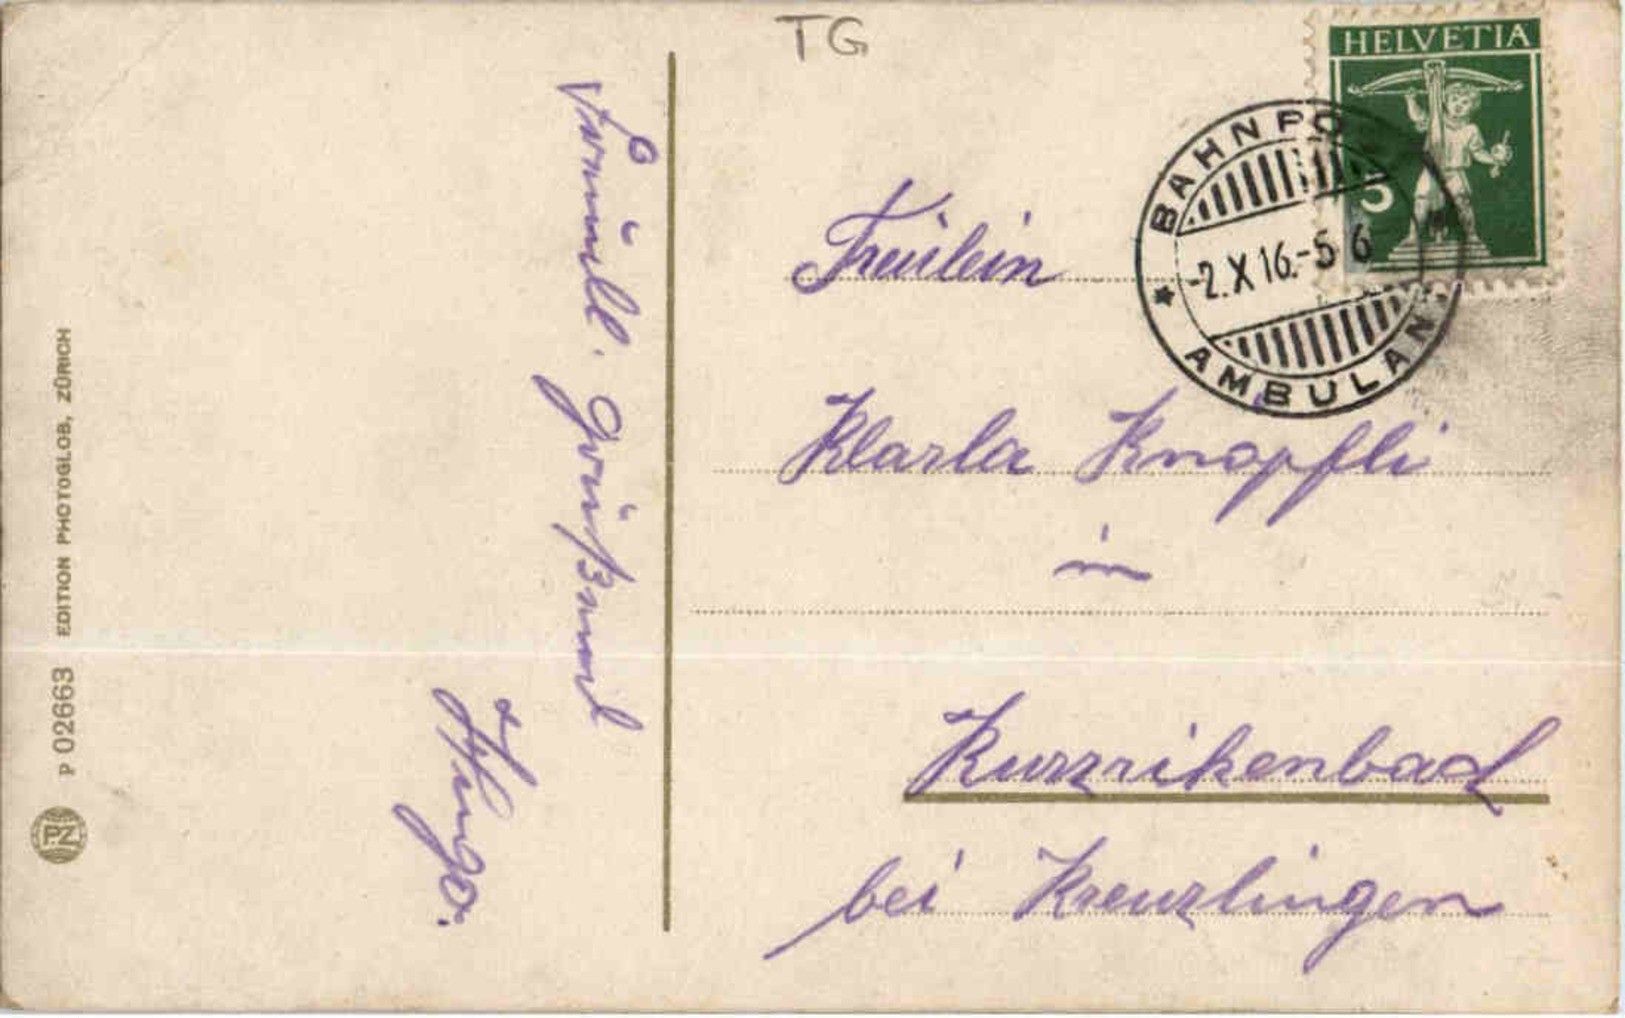 TG
HELVETIA
5
BAHNPO
-2.X 16.-5 6
AMBULAN
Freülein
Klarla Knopfli
in
Kurzrikenbad
bei Kreuzlingen
Hugo.
P 02663 EDITION PHOTOGLOB, ZÜRICH
PZ